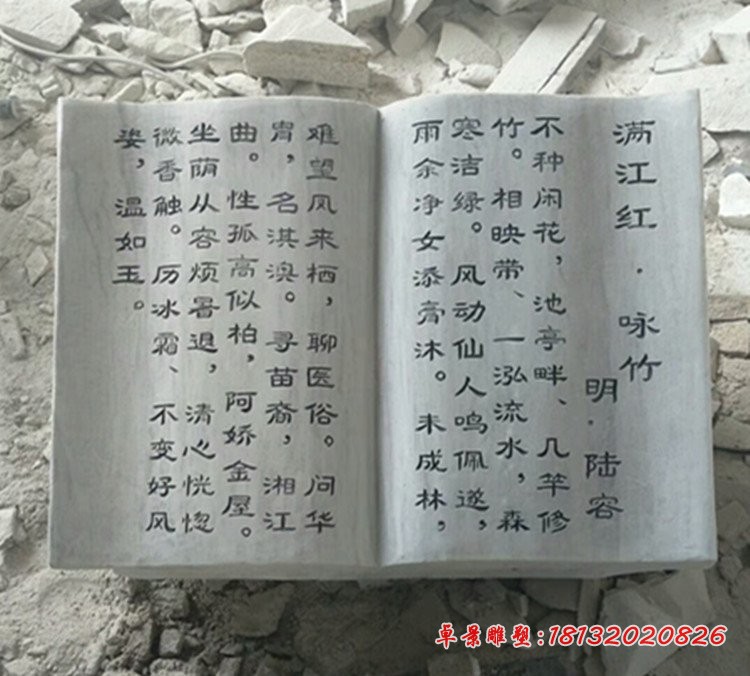 满江红·咏竹
明·陆容
不种闲花，池亭畔、几竿修
竹。相映带、一泓流水，森
寒洁绿。风动仙人鸣佩遂，
雨余净女添膏沐。未成林，
难望风来栖，聊医俗。问华
胄，名淇澳。寻苗裔，湘江
曲。性孤高似柏，阿娇金屋。
坐荫从容烦暑退，清心恍惚
微香触。历冰霜、不变好风
姿，温如玉。
卓景雕塑:18132020826